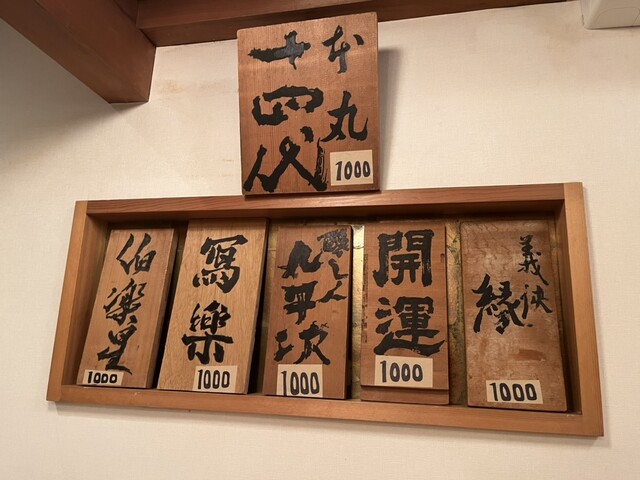 本丸
十四代
1000
伯楽星
1000
寫樂
1000
醸し人
九平次
1000
開運
1000
義侠
縁
1000